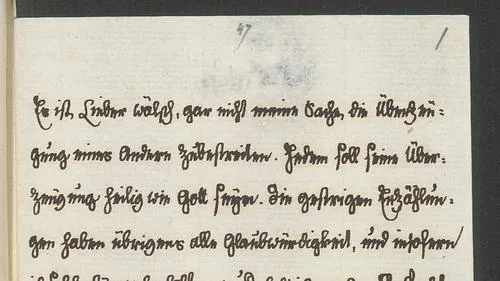 47 1
Es ist, Lieber wälsch, gar nicht meine Sache, die Überzeü-
gung eines Andern zubestreiten. Jedem soll seine Über-
zeügung heilig wie Gott seÿn. Die gestrigen Erzählun-
gen haben übrigens alle Glaubwürdigkeit, und insofern